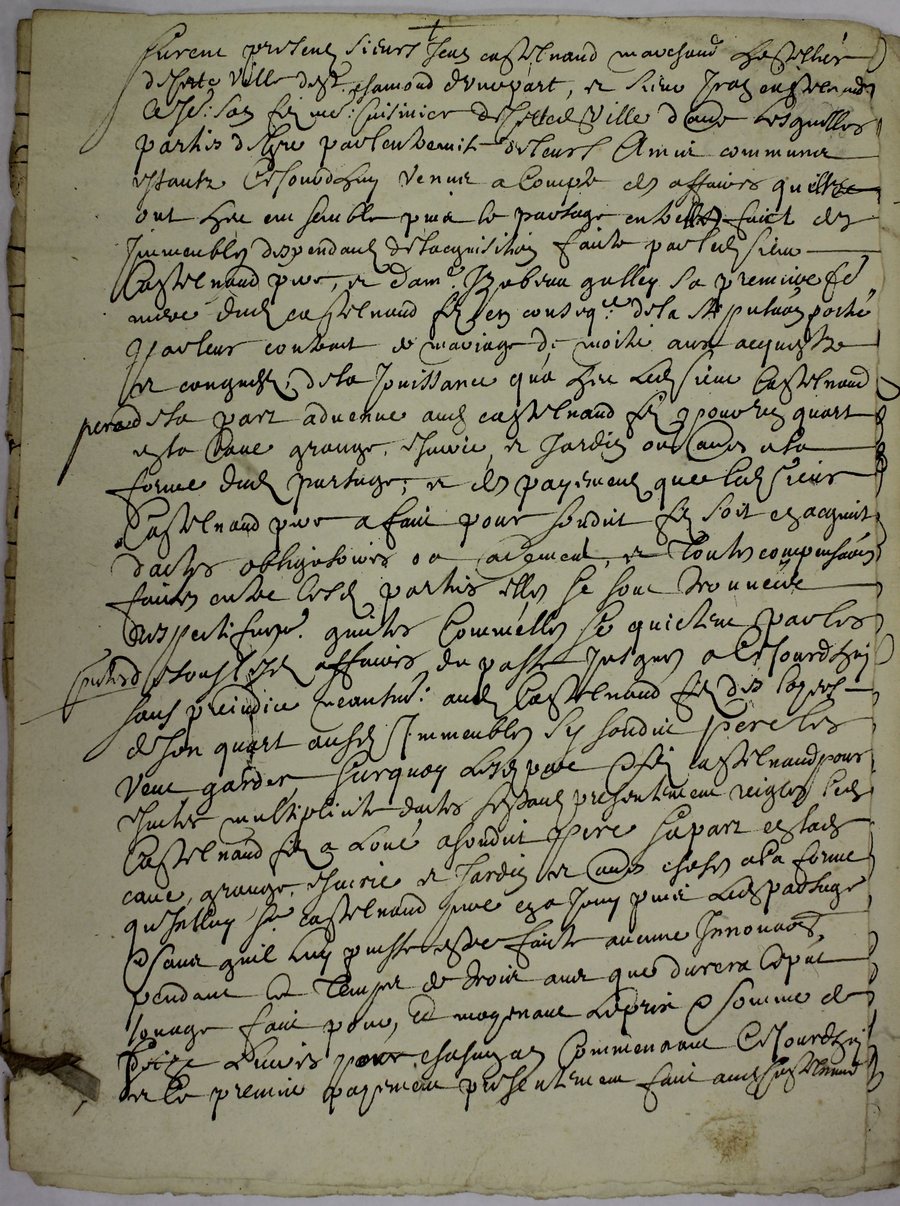 furent presens sieurs Jean castelnaud marchand hostellier
de ville de st chamond d'une part, et sieur castelnaud
son fils me: Cuisinier de ville d'autre lesquelles
parties de leurs Amis communs
estantz Cejourdhuy venus a Compte des affaires qu'elles
ont heu ensemble puis le partage entre elles faict des
Jmmeubles deppendans de lacquisition faite par led sieur
Castelnaud pere, et dam.e Jzabeau galley sa premiere fe
mere dud castelnaud fils en conseq.ce de la stipulaon portée
par leur contract de mariage de moitié aux acquestz
et conquestz, de la Jouissance qua heu led sieur Castelnaud
pere de la part advenue aud castelnaud fils pour un quart
a la cave grange, escurie, et Jardin ou a la
forme dud partage, et des payemens que led sieur
Castelnaud pere a fait pour sondit fils soit en acquit
dactes obligatoires ou autrement, et toutes compensaons
faites entre lesd parties elles se sont trouvées
respectivem.t quittes Comme elles se quittent par les
et tous lesd affaires du passé Jusques a Cejourdhuy
sans prejudice neantm.s aud Castelnaud fils des loyers
de son quart ausd Jmmeubles que sondit pere les
veut garder, surquoy lesd pere & fils castelnaud pour
esviter multiplicité dactes sestant presentement reiglés led
Castelnaud fils a Loué a sondit pere sa part esdits
cave, grange, escurie et Jardin et autres choses a la forme
que led sr castelnaud pere en a Jouy puis led partage
& sans quil luy puisse estre faite aucune Jnnovaon
pendant le Temps de trois ans que durera le pnt
louage fait pour, et moyenant le prix & somme de
Livres pour chasqu'an Commencant Cejourdhuy
et le premier payement presentement fait aud Castelnaud